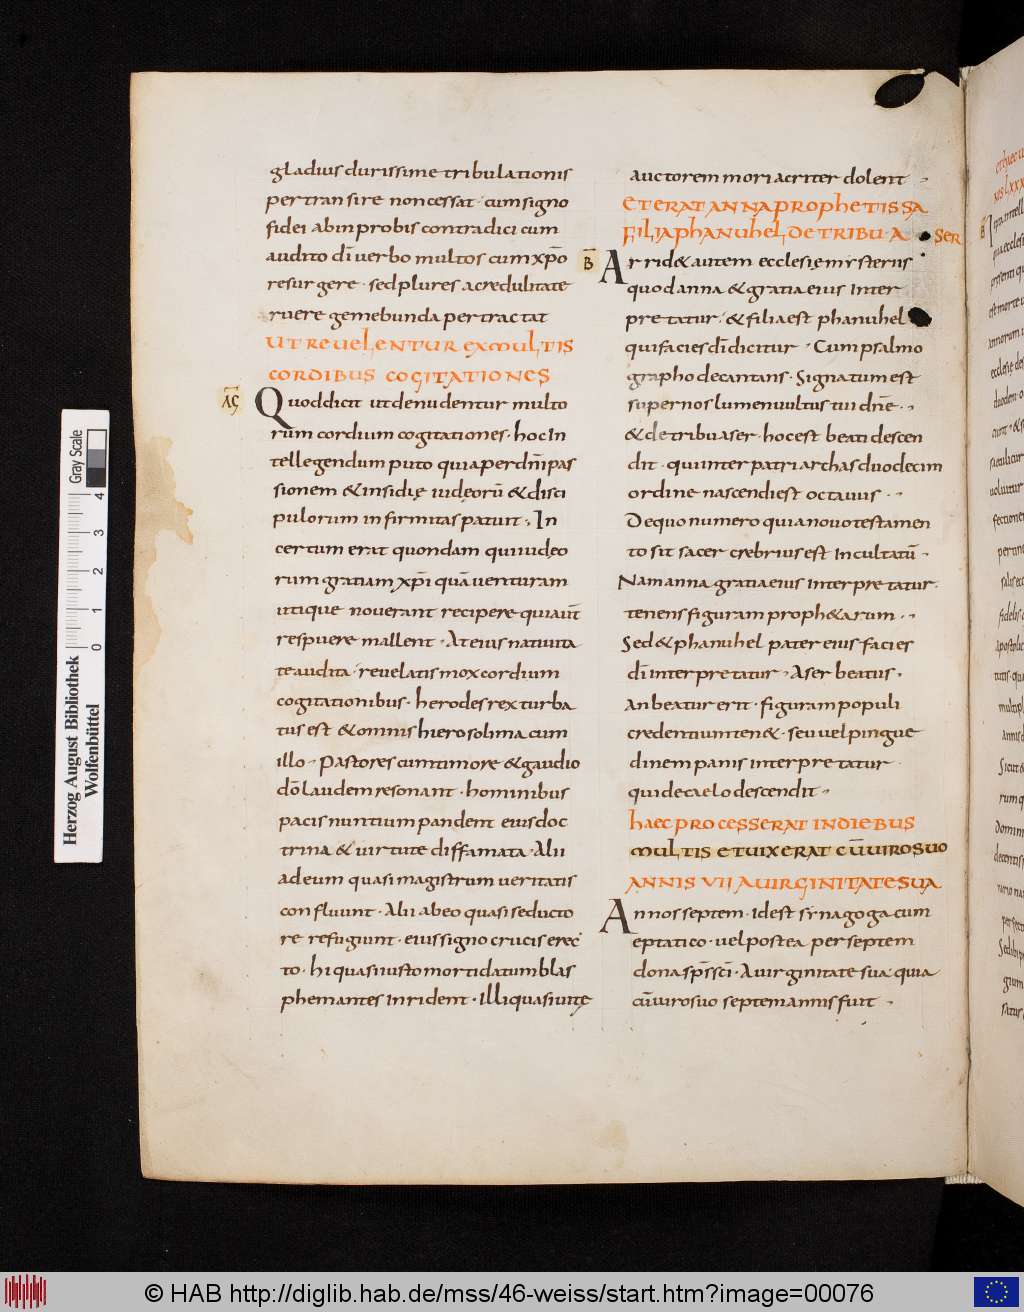 gladius durissime tribulationis
pertransire non cessat · cum signo
fidei ab inprobis contradici cum
audito dī verbo multos cum xp̄o
resurgere · sed plures a credulitate
ruere gemebunda pertractat
UT REVELENTUR EX MULTIS
CORDIBUS COGITATIONES
AC
Quod dicit ut denudentur multo
rum cordium cogitationes · hoc in
tellegendum puto quia per dn̄i pas
sionem & insidię iudeorū & disci
pulorum infirmitas patuit · In
certum erat quondam qui iudeo
rum gratiam xp̄i quā venturam
utique noverant recipere qui aūt
respuere mallent · At eius nativita
te audita · revelatis mox cordium
cogitationibus · herodes rex turba
tus est & omnis hierosolima cum
illo · Pastores cum timore & gaudio
dō laudem resonant · hominibus
pacis nuntium pandent eius doc
trina & virtute diffamata · Alii
ad eum quasi magistrum veritatis
confluunt · Alii ab eo quasi seducto
re refugiunt · eius signo crucis erec
to · hi quasi iusto morti datum blas
phemantes inrident · Illi quasi vitę
auctorem mori acriter dolent
ET ERAT ANNA PROPHETISSA
FILIA PHANUHEL DE TRIBU ASER
B
Arrid& autem ecclesię mysteriis
quod anna & gratia eius inter
pretatur · & filia est phanuhel
qui facies dī dicitur · Cum psalmo
grapho decantans · Signatum est
super nos lumen vultus tui dn̄e ·
& de tribu aser · hoc est beati descen
dit · qui inter patriarchas duodecim
ordine nascendi est octavus ·
De quo numero quia novo testamen
to sit sacer crebrius est inculcatū ·
Nam anna gratia eius interpretatur ·
tenens figuram proph&arum ·
Sed & phanuhel pater eius facies
dī interpretatur · Aser beatus ·
an beatur erit · figuram populi
credentium ten& · seu vel pingue
dinem panis interpretatur
qui de caelo descendit ·
HAEC PROCESSERAT IN DIEBUS
MULTIS ET VIXERAT CŪ VIRO SUO
ANNIS VII A VIRGINITATE SUA
Annos septem · Id est synagoga cum
eptatico · vel postea per septem
dona sp̄s sc̄i · A virginitate sua quia
cū viro suo septem annis fuit ·
Herzog August Bibliothek
Wolfenbüttel
Gray Scale
0 1 2 3 4
© HAB http://diglib.hab.de/mss/46-weiss/start.htm?image=00076